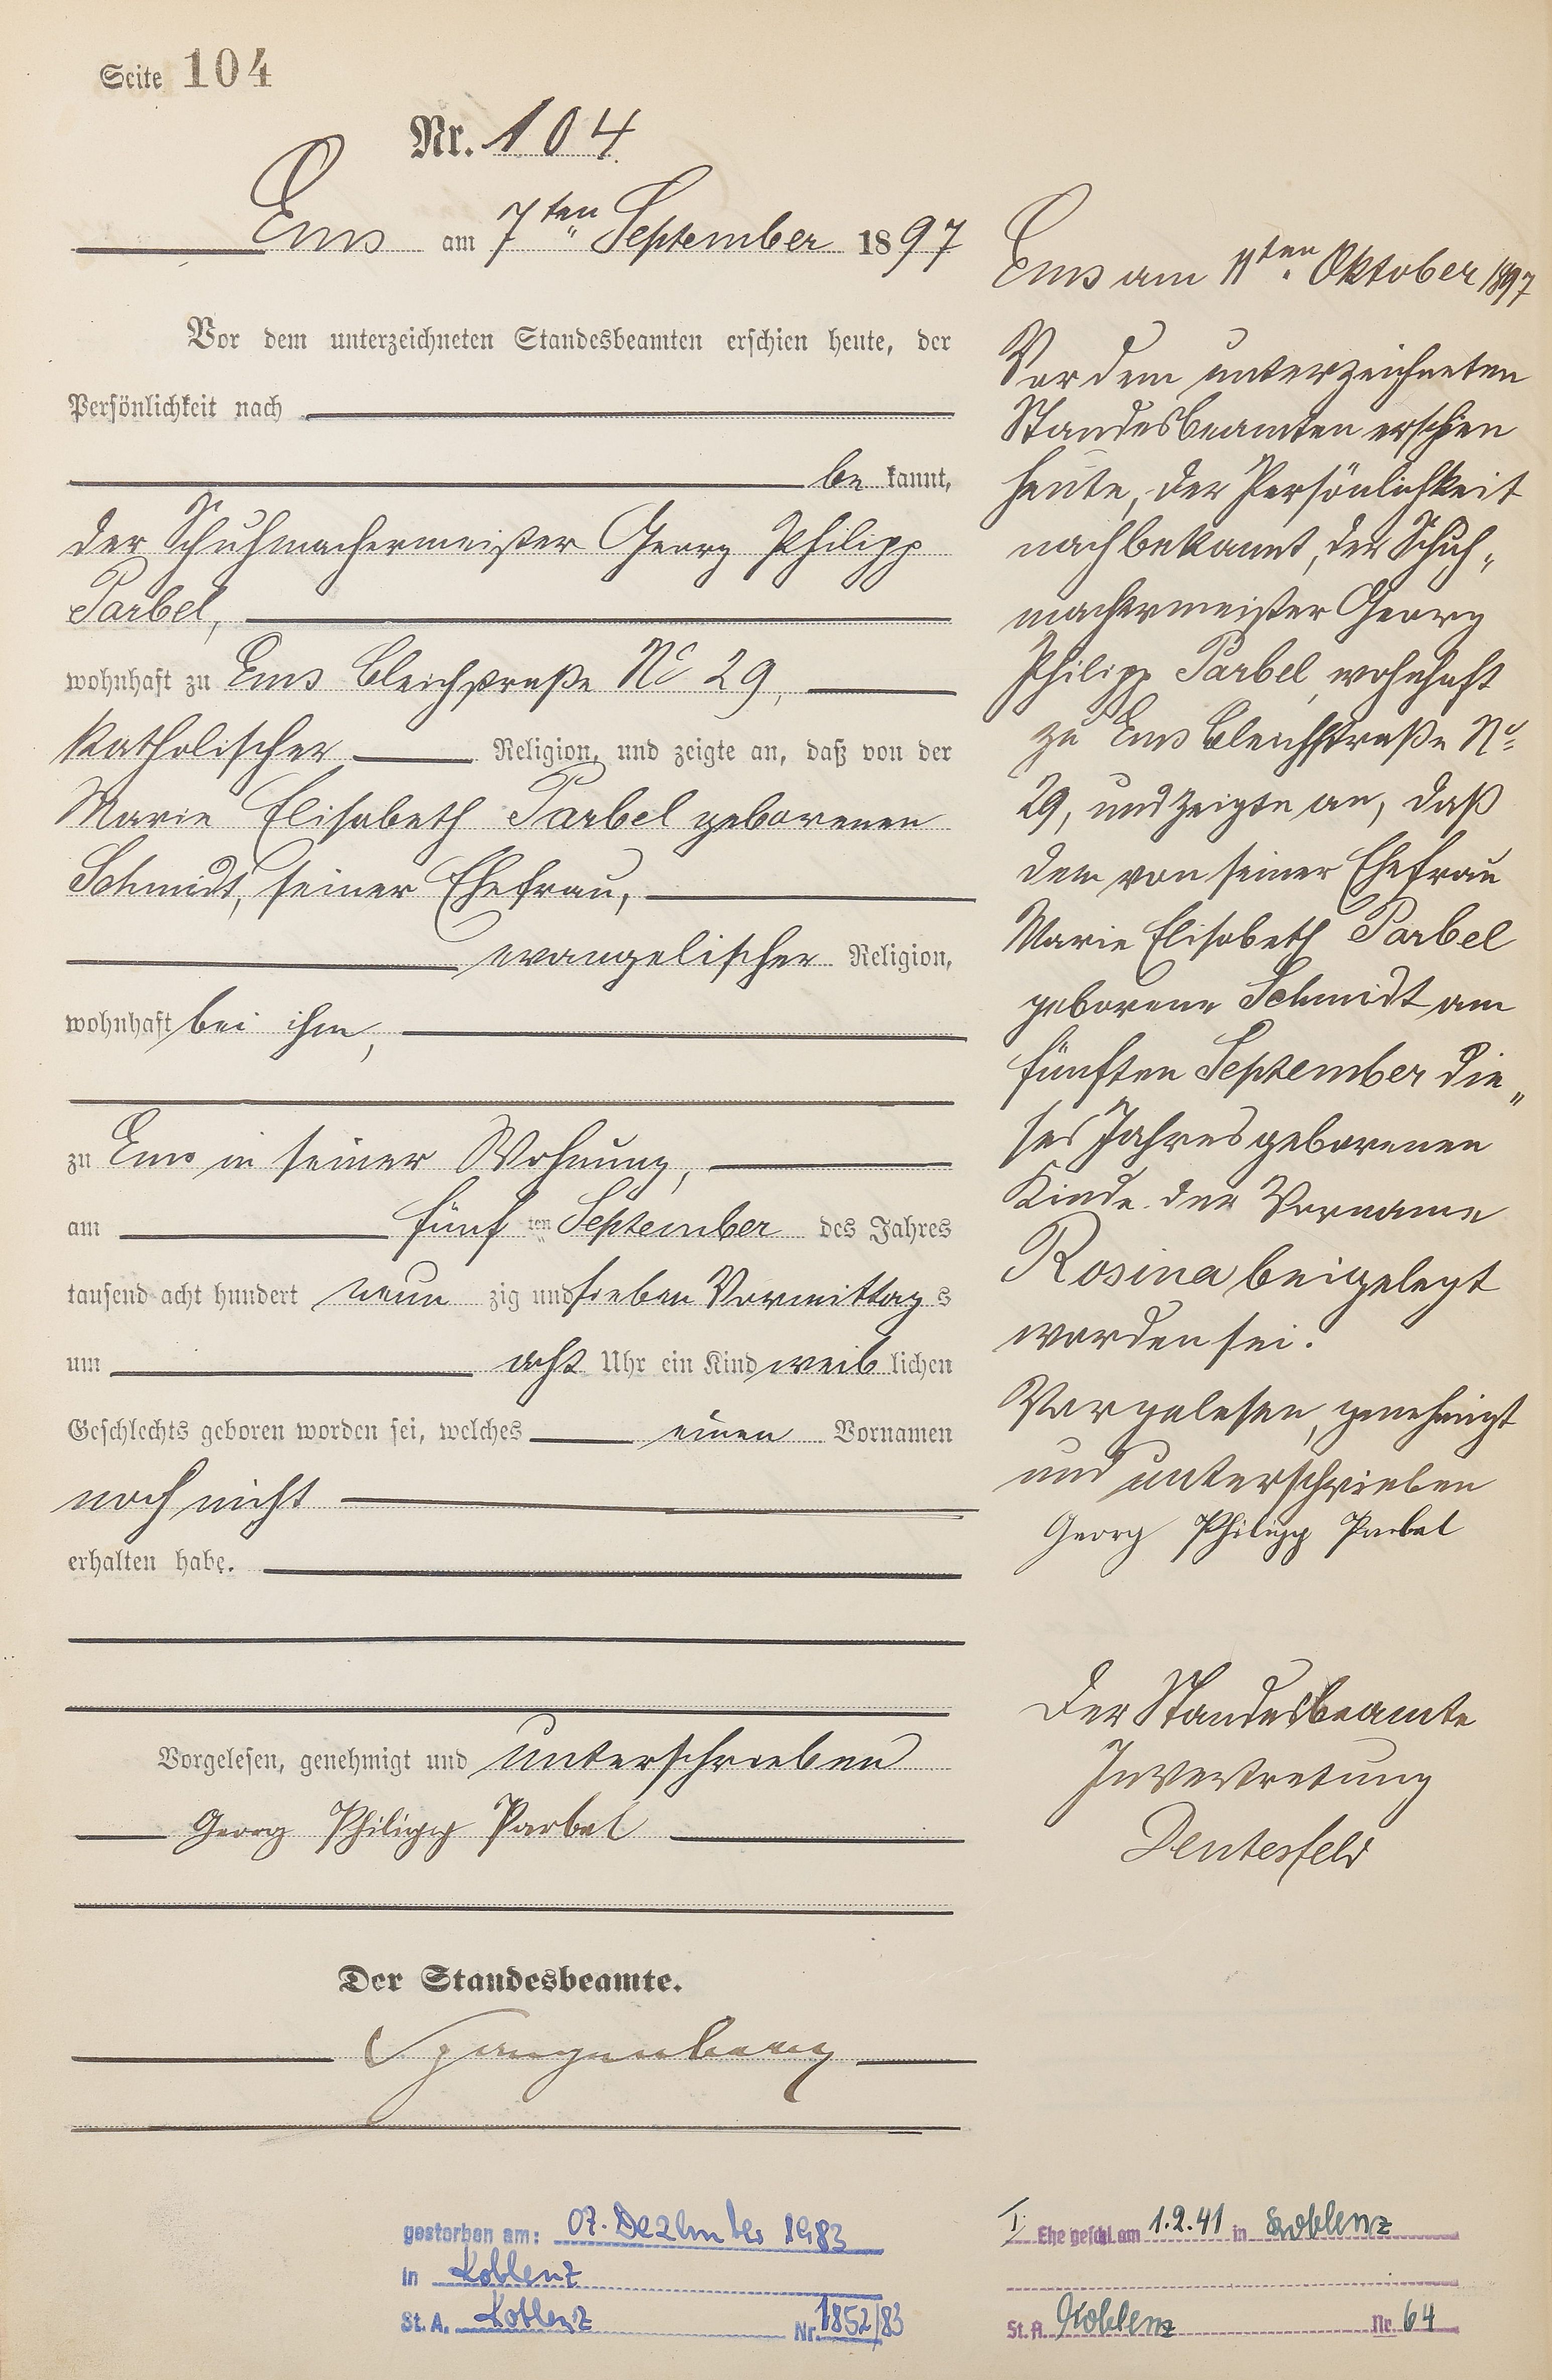 Seite 104
Nr. 104
Ems am 7ten September 1897
Vor dem unterzeichneten Standesbeamten erschien heute, der
Persönlichkeit nach
be kannt,
der Schuhmachermeister Georg Philipp
Parbel,
wohnhaft zu Ems Bleichstraße No 29,
katholischer Religion, und zeigte an, daß von der
Marie Elisabeth Parbel geborenen
Schmidt, seiner Ehefrau,
evangelischer Religion,
wohnhaft bei ihm,
zu Ems in seiner Wohnung,
am fünf ten September des Jahres
tausend acht hundert neun zig und sieben Vormittag s
um acht Uhr ein Kind weib lichen
Geschlechts geboren worden sei, welches einen Vornamen
noch nicht
erhalten habe.
Vorgelesen, genehmigt und unterschrieben
Georg Philipp Parbel
Der Standesbeamte.
Spangenberg
Ems am 11ten Oktober 1897
Vor dem unterzeichneten
Standesbeamten erschien
heute, der Persönlichkeit
nach bekannt, der Schuh-
machermeister Georg
Philipp Parbel, wohnhaft
zu Ems Bleichstraße No
29, und zeigte an, daß
dem von seiner Ehefrau
Marie Elisabeth Parbel
geborene Schmidt am
fünften September die„
ses Jahres geborenen
Kinde der Vorname
Rosina beigelegt
worden sei.
Vorgelesen, genehmigt
und unterschrieben
Georg Philipp Parbel
Der Standesbeamte
In Vertretung
gestorben am: 07. Dezember 1983
in Koblenz
St. A. Koblenz Nr. 1852/83
I. Ehe geschl. am 1.2.41 in Koblenz
St. A. Koblenz Nr. 64